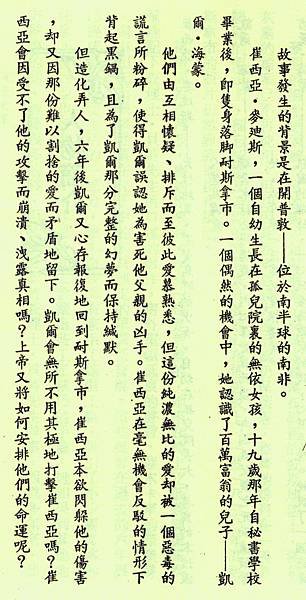 故事發生的背景是在開普敦——位於南半球的南非。
崔西亞·麥迪斯，一個自幼生長在孤兒院裏的無依女孩，十九歲那年自秘書學校
畢業後，即隻身落脚耐斯拿市。一個偶然的機會中，她認識了百萬富翁的兒子——凱
爾·海蒙。
他們由互相懷疑、排斥而至彼此愛慕熟悉，但這份純濃無比的愛却被一個惡毒的
謊言所粉碎，使得凱爾誤認她為害死他父親的凶手。崔西亞在毫無機會反駁的情形下
背起黑鍋，且為了凱爾那分完整的幻夢而保持緘默。
但造化弄人，六年後凱爾又心存報復地回到耐斯拿市，崔西亞本欲閃躲他的傷害
，却又因那份難以割捨的愛而矛盾地留下。凱爾會無所不用其極地打擊崔西亞嗎？崔
西亞會因受不了他的攻擊而崩潰、洩露真相嗎？上帝又將如何安排他們的命運呢？